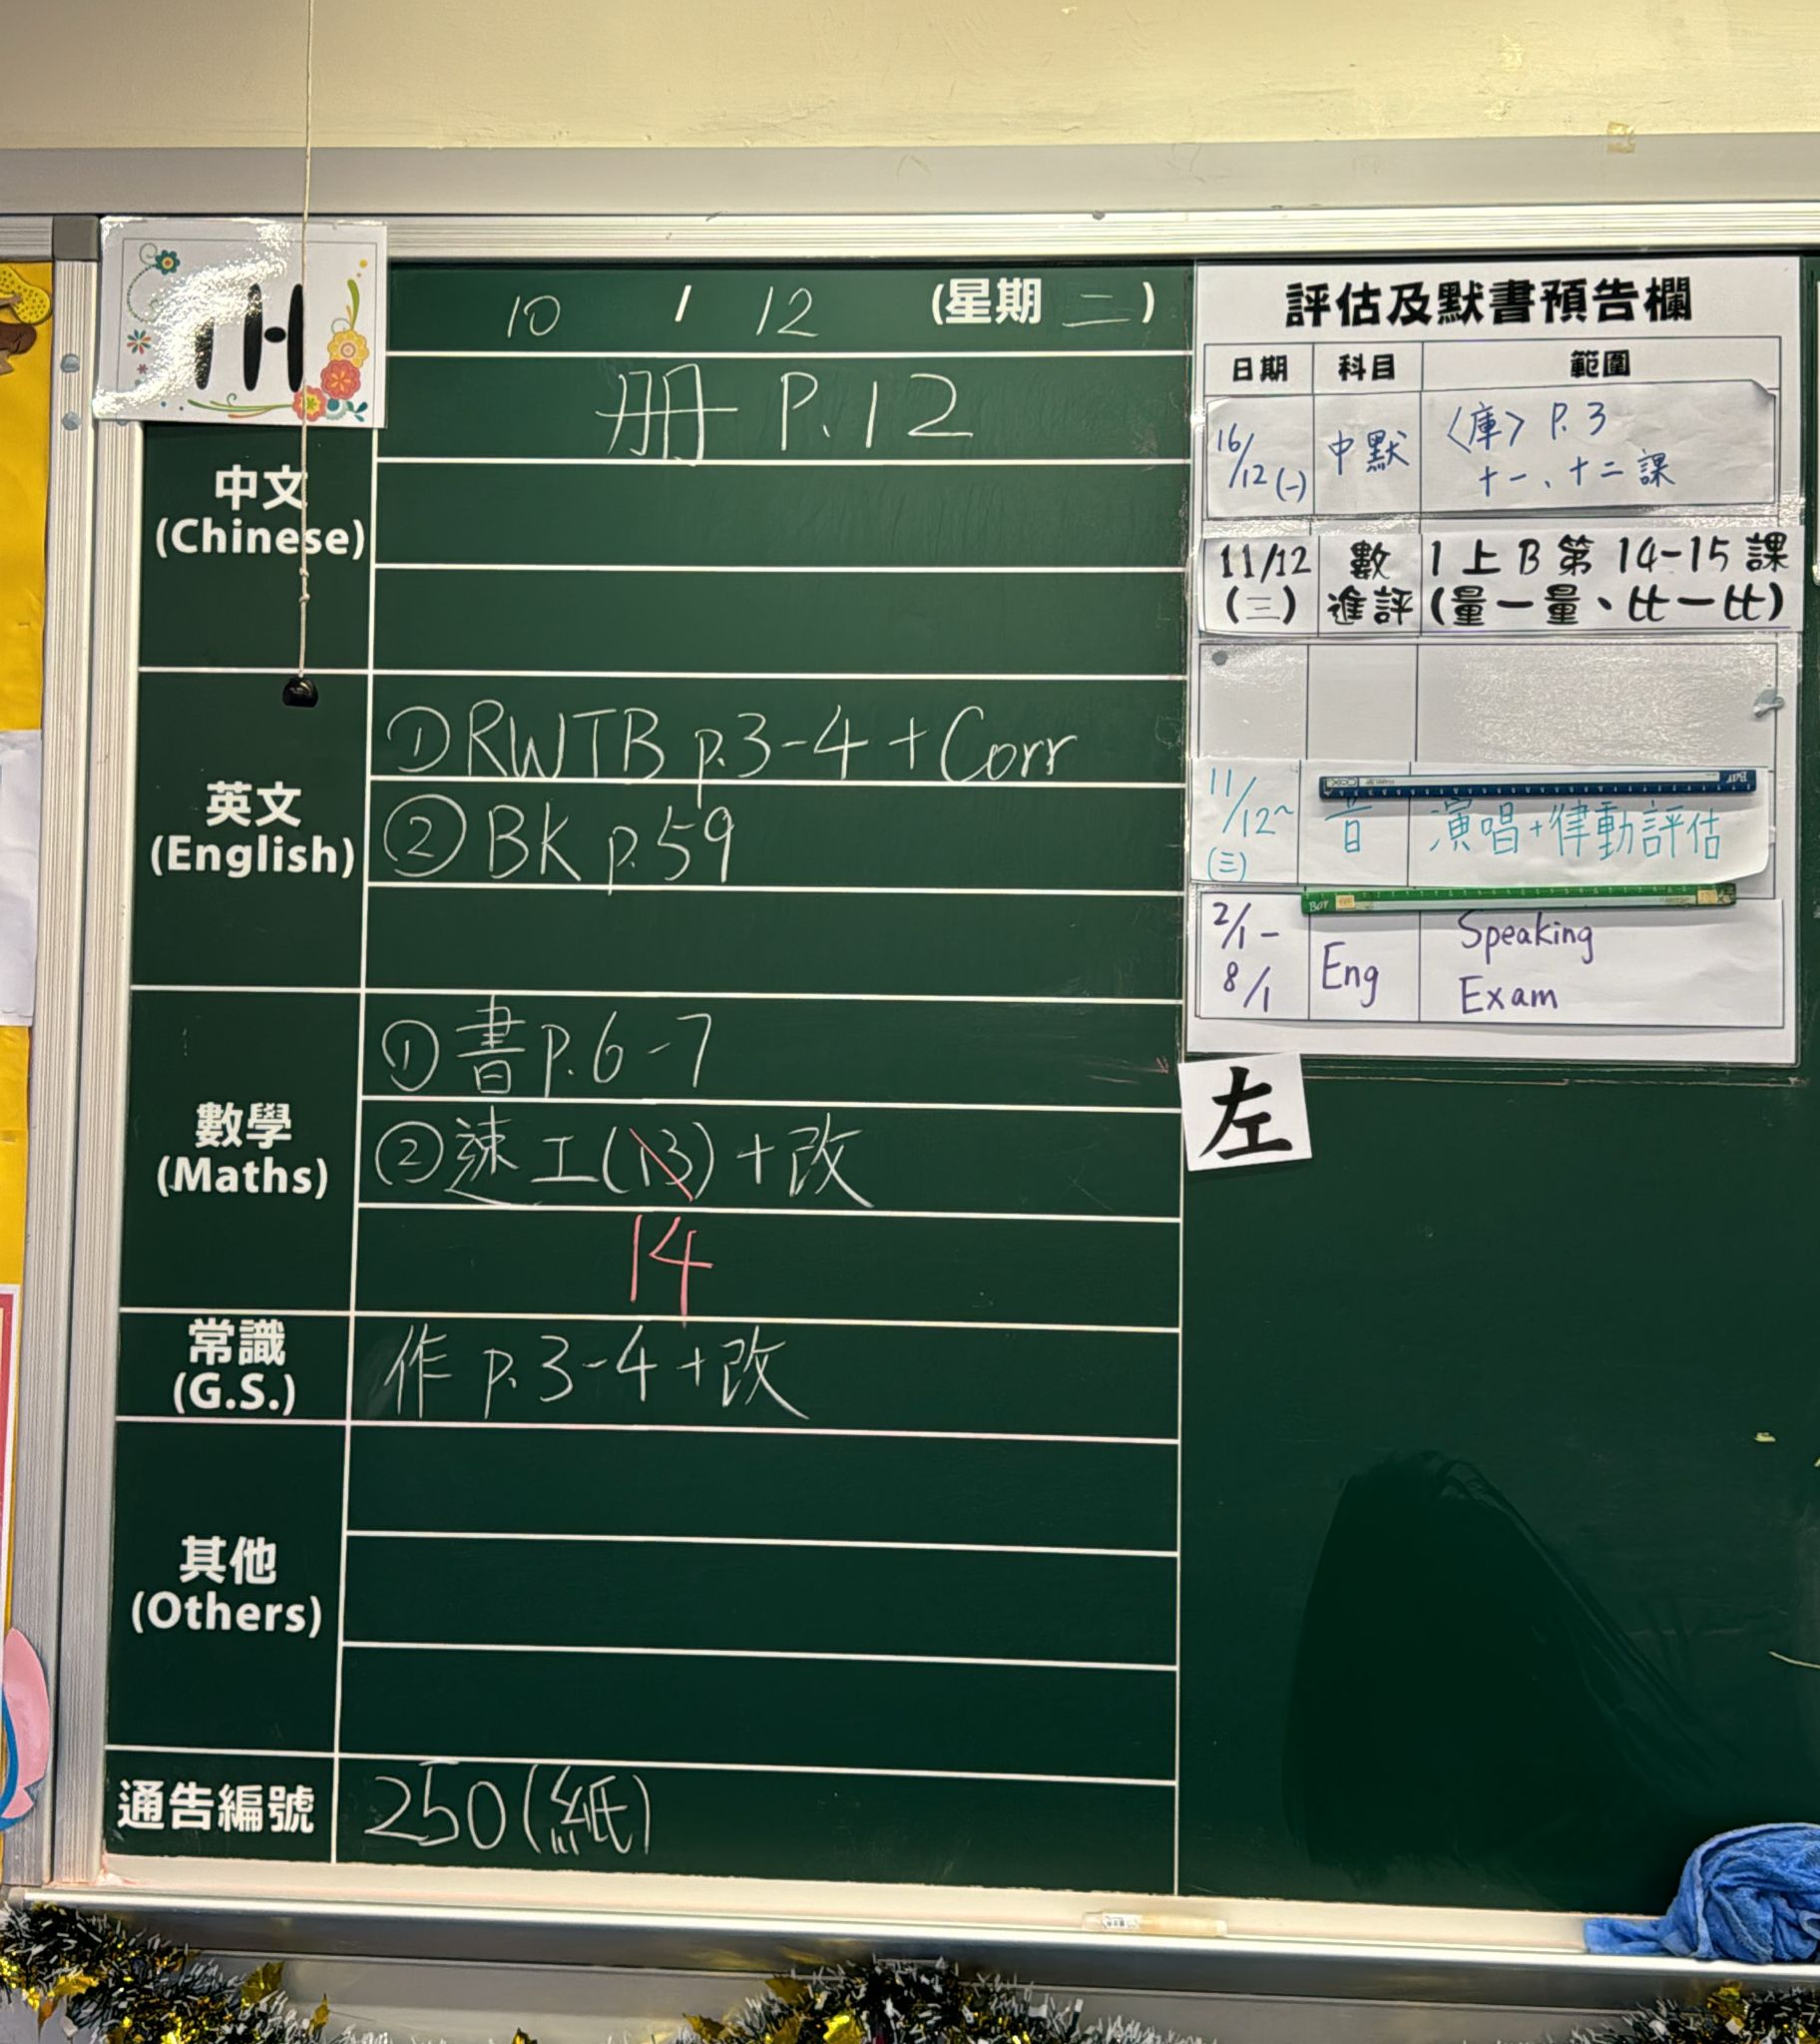 1H
10 / 12 (星期 二)
冊 P.12
中文
(Chinese)
英文
(English)
① RWTB p.3-4 + Corr
② BK p.59
數學
(Maths)
① 書 p.6-7
② 速工(13) + 改
14
常識
(G.S.)
作 p.3-4 + 改
其他
(Others)
通告編號
250(紙)
評估及默書預告欄
日期 科目 範圍
16/12(一) 中默 〈庫〉 P.3
十一、十二課
11/12 數 1上B第14-15課
(三) 進評 (量一量、比一比)
11/12~ 音 演唱+律動評估
(三)
2/1 - Eng Speaking
8/1 Exam
左